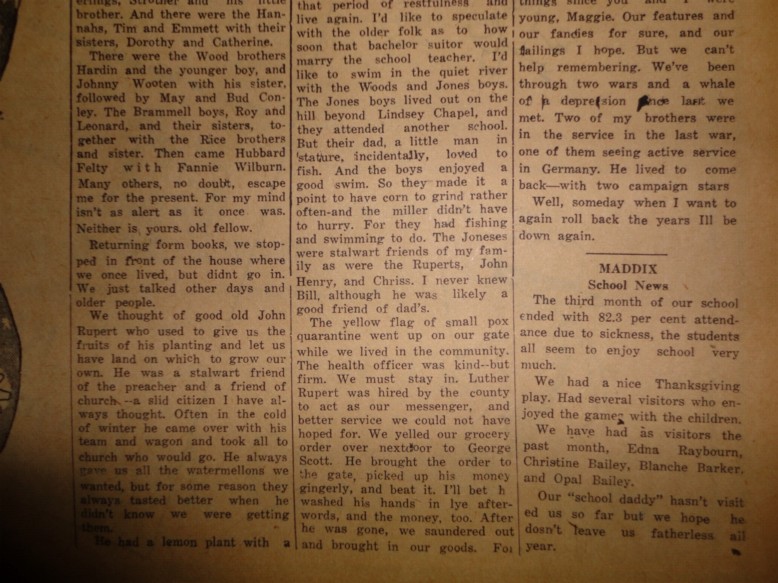 erings, Strother and his little
brother. And there were the Han-
nahs, Tim and Emmett with their
sisters, Dorothy and Catherine.
There were the Wood brothers
Hardin and the younger boy, and
Johnny Wooten with his sister,
followed by May and Bud Con-
ley. The Brammell boys, Roy and
Leonard, and their sisters, to-
gether with the Rice brothers
and sister. Then came Hubbard
Felty with Fannie Wilburn.
Many others, no doubt, escape
me for the present. For my mind
isn't as alert as it once was.
Neither is yours. old fellow.
Returning form books, we stop-
ped in front of the house where
we once lived, but didnt go in.
We just talked other days and
older people.
We thought of good old John
Rupert who used to give us the
fruits of his planting and let us
have land on which to grow our
own. He was a stalwart friend
of the preacher and a friend of
church--a slid citizen I have al-
ways thought. Often in the cold
of winter he came over with his
team and wagon and took all to
church who would go. He always
gave us all the watermellons we
wanted, but for some reason they
always tasted better when he
didn't know we were getting
them.
He had a lemon plant with a
that period of restfulness and
live again. I'd like to speculate
with the older folk as to how
soon that bachelor suitor would
marry the school teacher. I'd
like to swim in the quiet river
with the Woods and Jones boys.
The Jones boys lived out on the
hill beyond Lindsey Chapel, and
they attended another school.
But their dad, a little man in
stature, incidentally, loved to
fish. And the boys enjoyed a
good swim. So they made it a
point to have corn to grind rather
often-and the miller didn't have
to hurry. For they had fishing
and swimming to do. The Joneses
were stalwart friends of my fam-
ily as were the Ruperts, John
Henry, and Chriss. I never knew
Bill, although he was likely a
good friend of dad's.
The yellow flag of small pox
quarantine went up on our gate
while we lived in the community.
The health officer was kind--but
firm. We must stay in. Luther
Rupert was hired by the county
to act as our messenger, and
better service we could not have
hoped for. We yelled our grocery
order over nextdoor to George
Scott. He brought the order to
the gate, picked up his money
gingerly, and beat it. I'll bet h
washed his hands in lye after-
words, and the money, too. After
he was gone, we saundered out
and brought in our goods. For
things since you and I were
young, Maggie. Our features and
our fancies for sure, and our
failings I hope. But we can't
help remembering. We've been
through two wars and a whale
of a depression since last we
met. Two of my brothers were
in the service in the last war,
one of them seeing active service
in Germany. He lived to come
back—with two campaign stars
Well, someday when I want to
again roll back the years Ill be
down again.
MADDIX
School News
The third month of our school
ended with 82.3 per cent attend-
ance due to sickness, the students
all seem to enjoy school very
much.
We had a nice Thanksgiving
play. Had several visitors who en-
joyed the games with the children.
We have had as visitors the
past month, Edna Raybourn,
Christine Bailey, Blanche Barker,
and Opal Bailey.
Our "school daddy" hasn't visit
ed us so far but we hope he
dosn't leave us fatherless all
year.